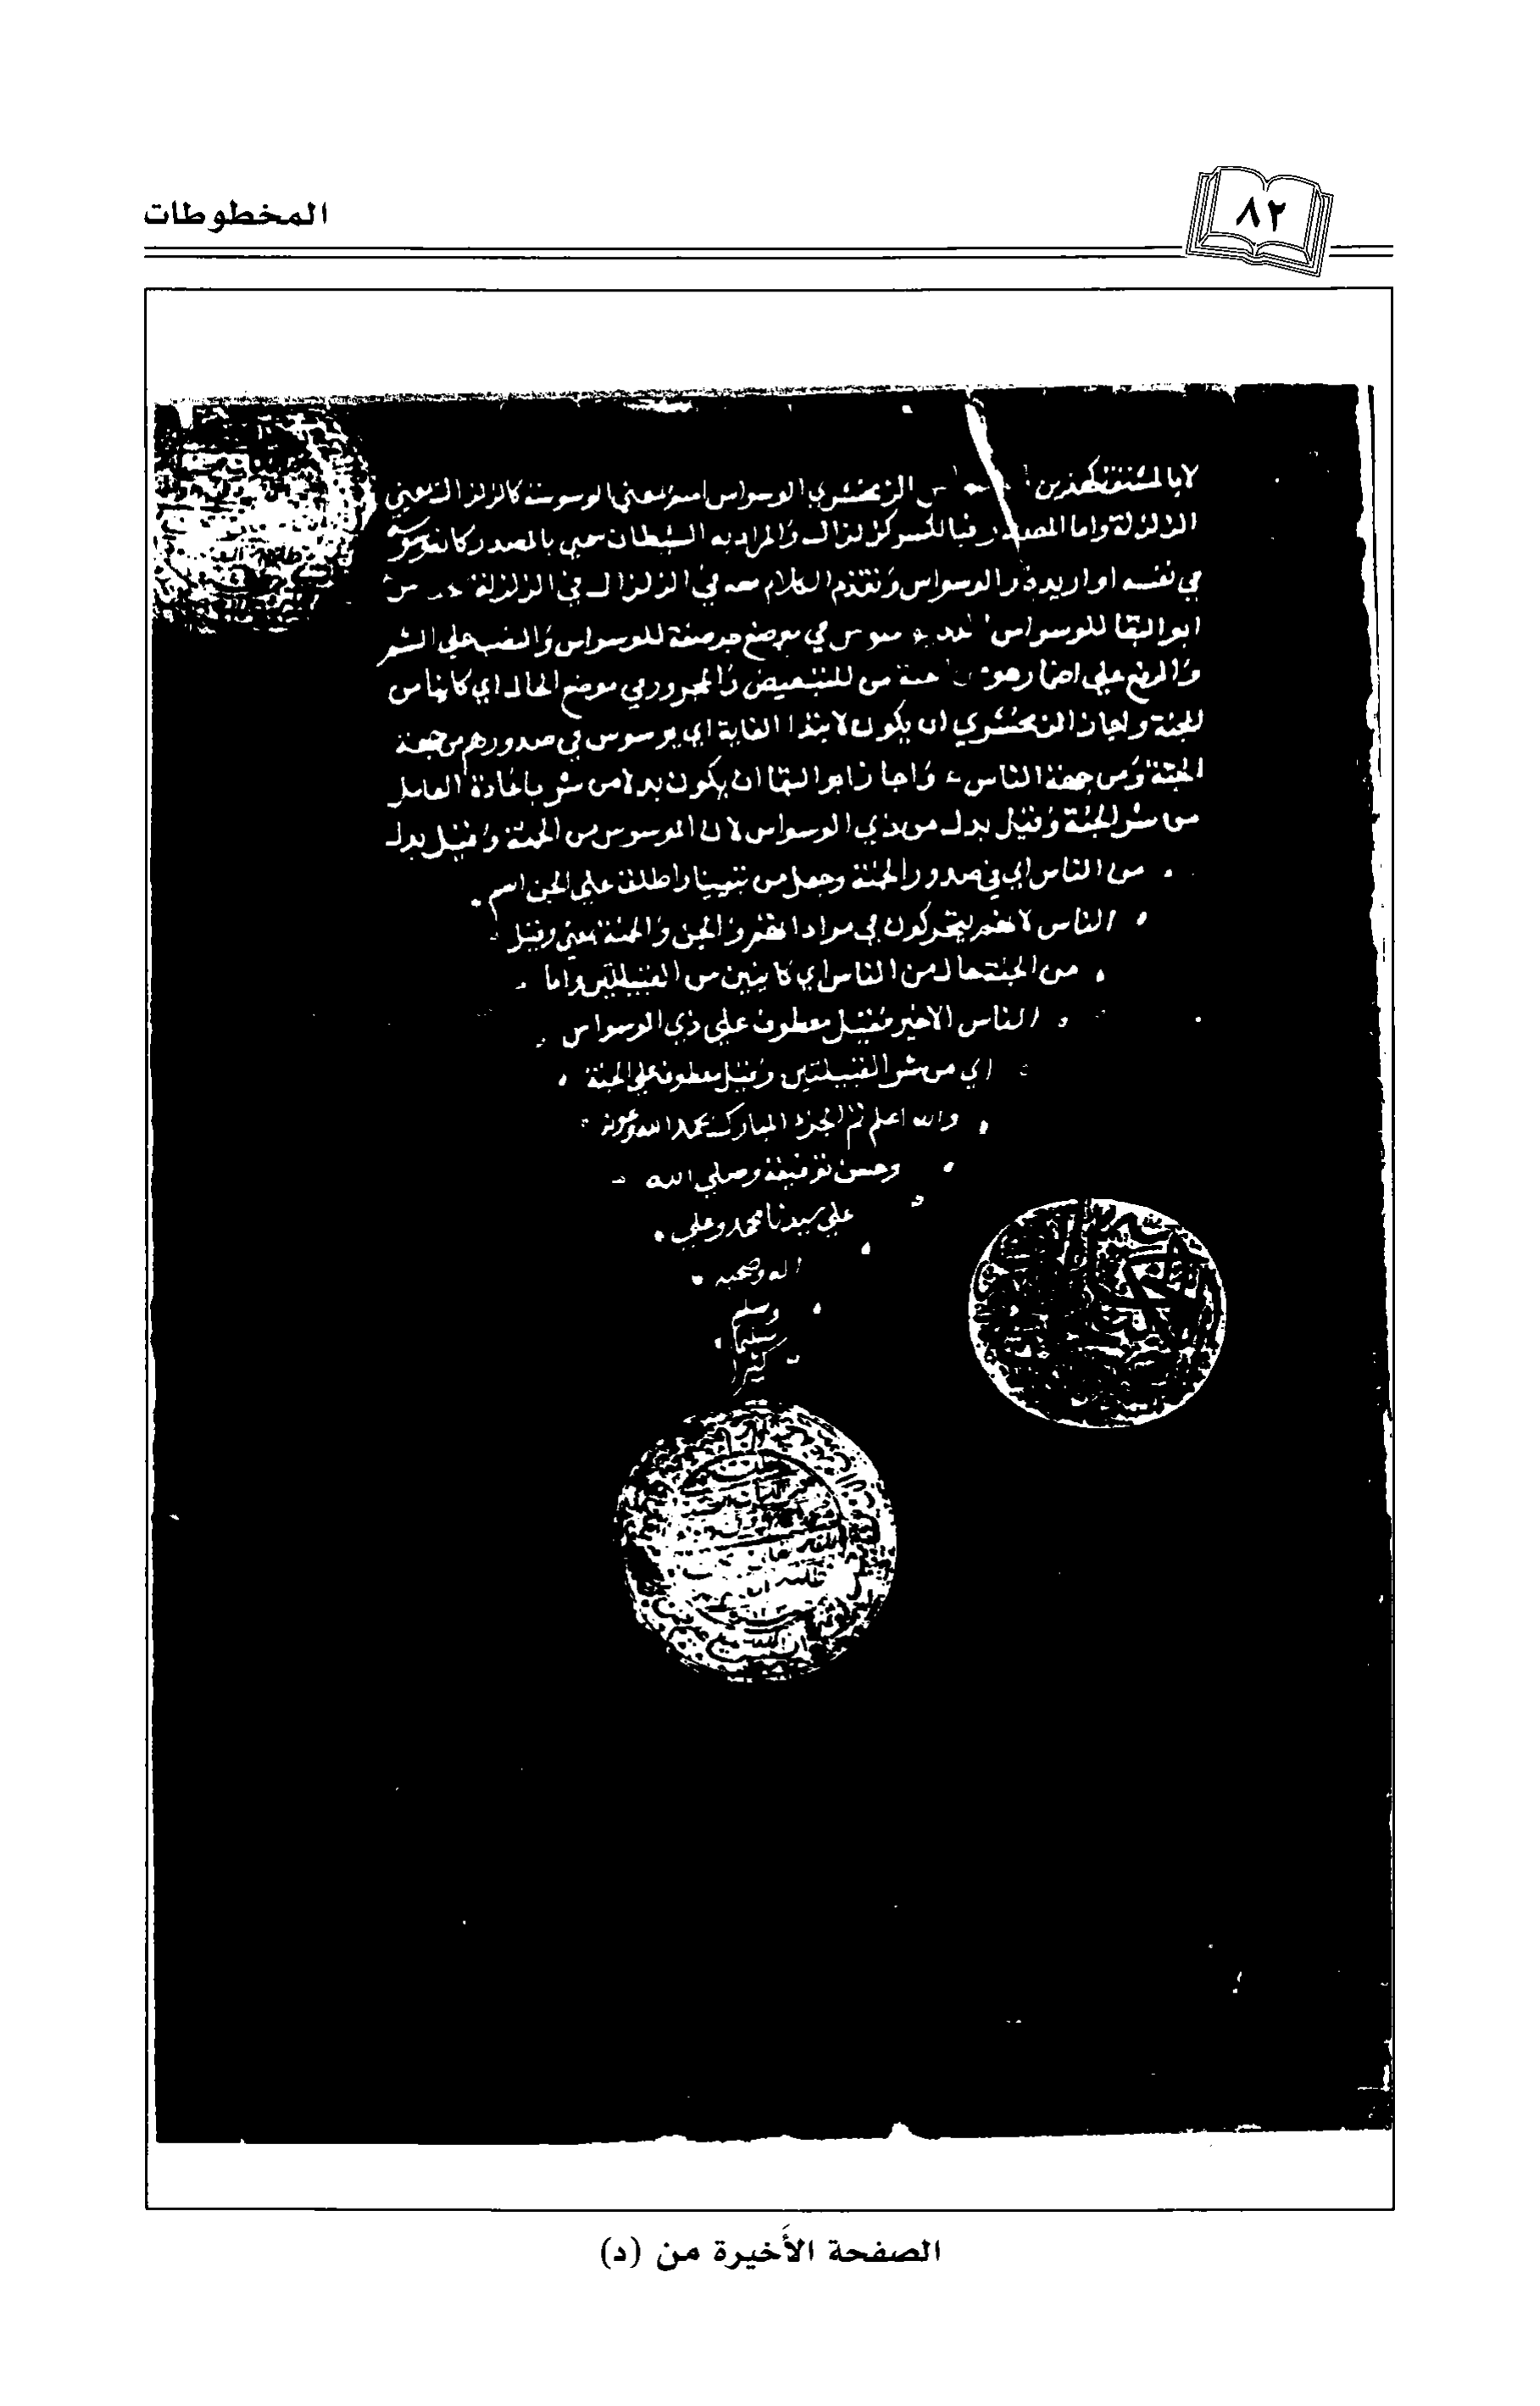 المخطوطات
٨٢
الزمخشري الوسواس اسم بمعني الوسوسة كالزلزال بمعني
الزلزلة واما المصدر فبالكسر كزلزال والمراد به الشيطان سمي بالمصدر كانه
في نفسه او اريد ذو الوسواس وتقدم الكلام معه في الزلزال في الزلزلة
ابو البقا للوسواس في موضع جر صفة للوسواس والنصب علي الشتم
والرفع علي اضمار هو من للتبعيض والمجرور في موضع الحال اي كاينا من
الجنة واجاز الزمخشري ان يكون لابتدا الغاية اي يوسوس في صدورهم من جهة
الجنة ومن جهة الناس واجاز ابو البقا ان يكون بدلا من شر باعادة العامل
من شر الجنة وقيل بدل من ذي الوسواس لان الموسوس من الجنة وقيل بدل
من الناس اي في صدور الجنة وجعل من تبيينا واطلق علي الجن اسم
الناس لانهم يتحركون في مراداتهم والجن والجنة بمعني وقيل
من الجنة حال من الناس اي كاينين من القبيلتين واما
الناس الاخير فقيل معطوف علي ذي الوسواس
اي من شر القبيلتين وقيل معطوف علي الجنة
والله اعلم تم الجزء المبارك بحمد الله وعونه
وحسن توفيقه وصلي الله
علي سيدنا محمد وعلي
اله وصحبه
وسلم
تسليما
كثيرا
الصفحة الأخيرة من (د)